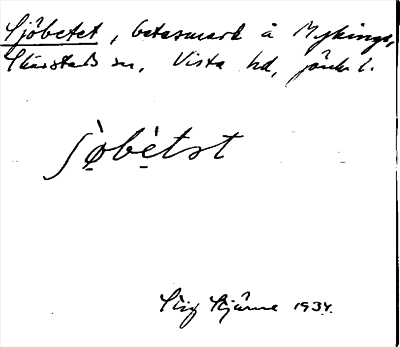 Sjöbetet, betesmark å Mykinge,
Skärstads sn, Vista hd, Jönk l.
sö̀bètət
Stig Stjärne 1934.